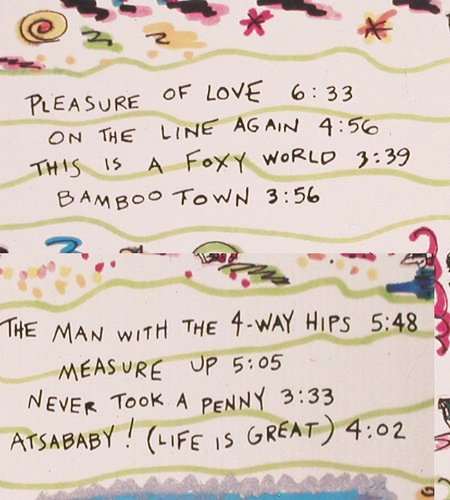 PLEASURE OF LOVE 6:33
ON THE LINE AGAIN 4:56
THIS IS A FOXY WORLD 3:39
BAMBOO TOWN 3:56
THE MAN WITH THE 4-WAY HIPS 5:48
MEASURE UP 5:05
NEVER TOOK A PENNY 3:33
ATSABABY! (LIFE IS GREAT) 4:02